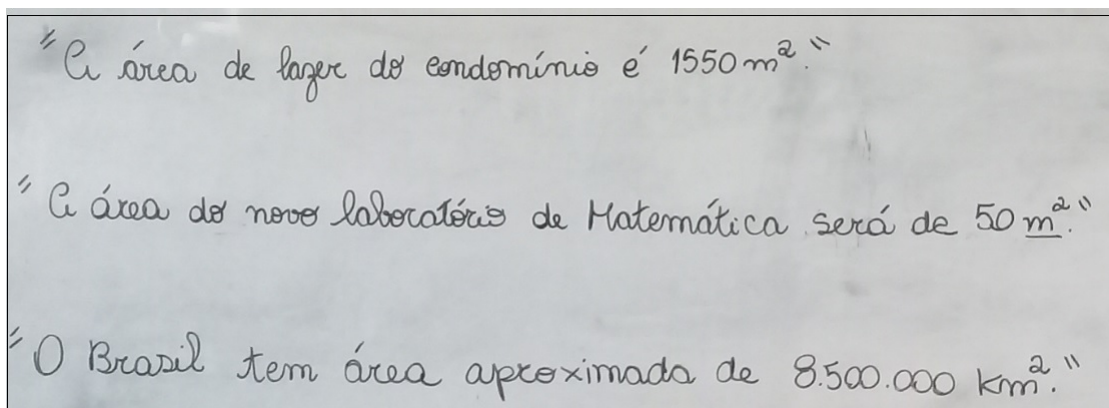 "A área de lazer do condomínio é 1550 m²."
"A área do novo laboratório de Matemática será de 50 m²."
"O Brasil tem área aproximada de 8.500.000 km²."